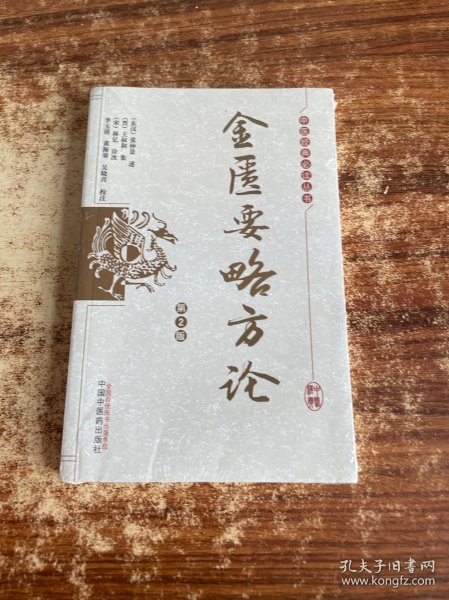 中医经典必读丛书
金匮要略方论
第2版
（东汉）张仲景 述
（晋）王叔和 集
（宋）林亿 诠次
李玉清 黄海量 吴晓青 校注
全国百佳图书出版单位
中国中医药出版社
孔夫子旧书网
www.kongfz.com